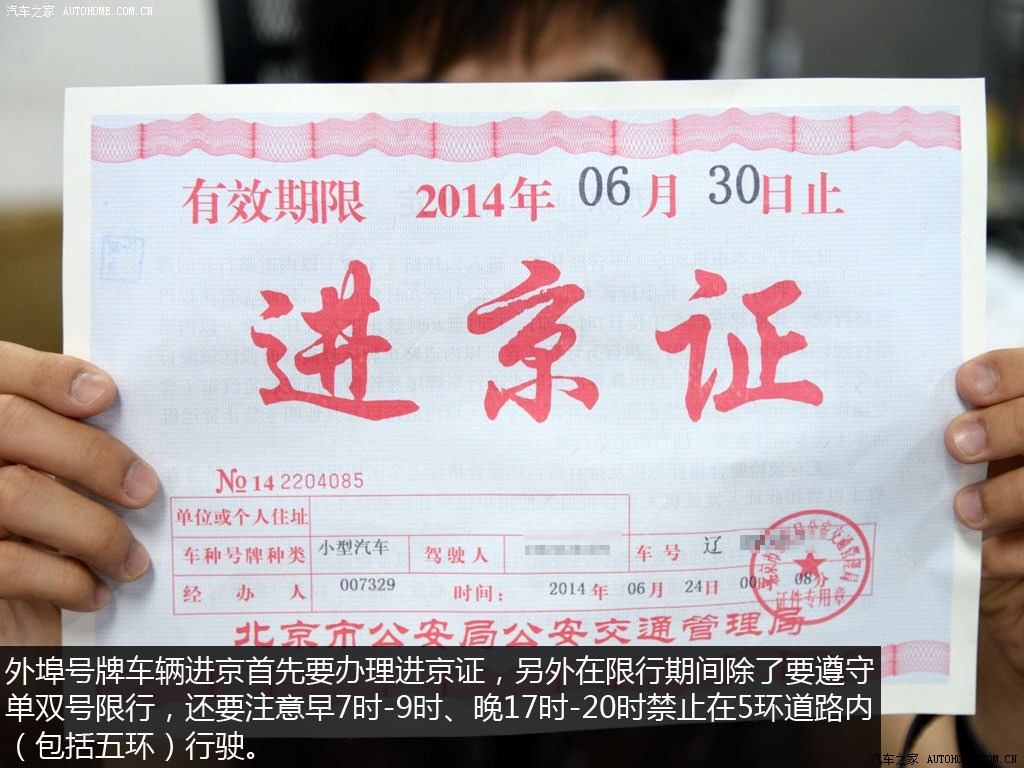 汽车之家 AUTOHOME.COM.CN
有效期限 2014年 06月 30日止
进京证
№ 14 2204085
单位或个人住址
车种号牌种类 小型汽车 驾驶人 车号 辽
经办人 007329 时间: 2014年 06月 24日 00 08分
证件专用章
北京市公安局公安交通管理局
外埠号牌车辆进京首先要办理进京证，另外在限行期间除了要遵守
单双号限行，还要注意早7时-9时、晚17时-20时禁止在5环道路内
（包括五环）行驶。
汽车之家 AUTOHOME.COM.CN